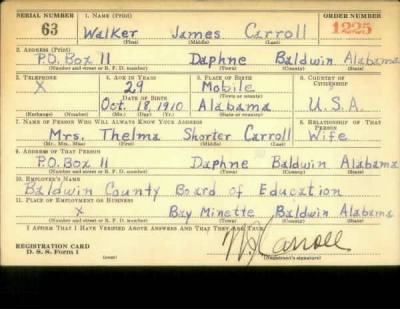 SERIAL NUMBER 1. NAME (Print) ORDER NUMBER
63 Walker James Carroll 1225
(First) (Middle) (Last)
2. ADDRESS (Print)
P.O. Box 11 Daphne Baldwin Alabama
(Number and street or R. F. D. number) (Town) (County) (State)
3. TELEPHONE 4. AGE IN YEARS 5. PLACE OF BIRTH 6. COUNTRY OF CITIZENSHIP
X 29 Mobile
DATE OF BIRTH (Town or county)
Oct. 18, 1910 Alabama U.S.A.
(Exchange) (Number) (Mo.) (Day) (Yr.) (State or country)
7. NAME OF PERSON WHO WILL ALWAYS KNOW YOUR ADDRESS 8. RELATIONSHIP OF THAT PERSON
Mrs. Thelma Shorter Carroll Wife
(Mr., Mrs., Miss) (First) (Middle) (Last)
9. ADDRESS OF THAT PERSON
P.O. Box 11 Daphne Baldwin Alabama
(Number and street or R. F. D. number) (Town) (County) (State)
10. EMPLOYER'S NAME
Baldwin County Board of Education
11. PLACE OF EMPLOYMENT OR BUSINESS
X Bay Minette Baldwin Alabama
(Number and street or R. F. D. number) (Town) (County) (State)
I AFFIRM THAT I HAVE VERIFIED ABOVE ANSWERS AND THAT THEY ARE TRUE.
REGISTRATION CARD
D. S. S. Form 1
WJ Carroll
(Registrant's signature)